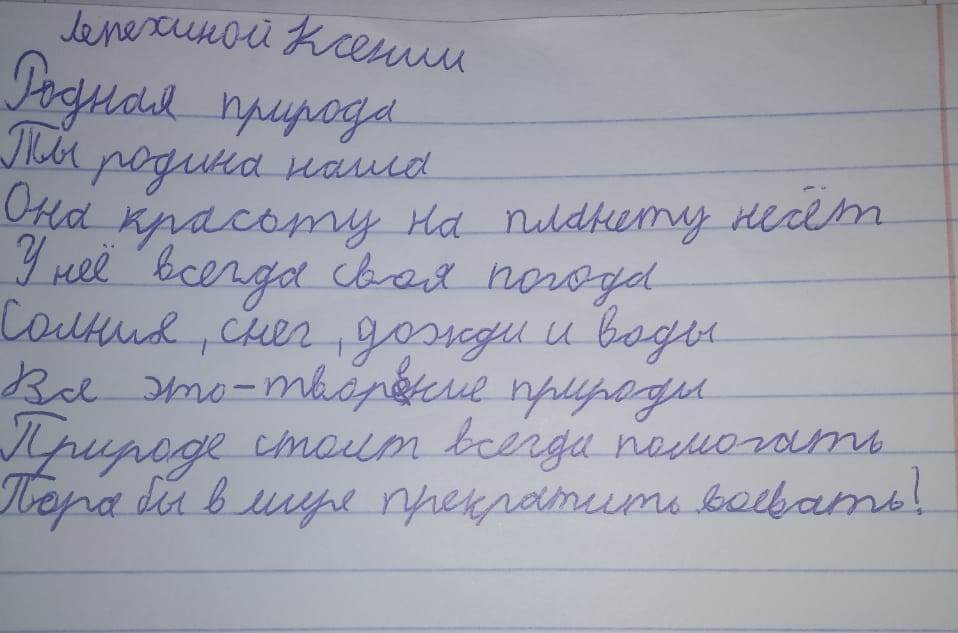 Лепехиной Ксении
Родная природа
Ты родина наша
Она красоту на планету несёт
У неё всегда своя погода
Солния, снег, дожди и воды
Все это-творение природы
Природе стоит всегда помогать
Пора бы в мире прекратить воевать!